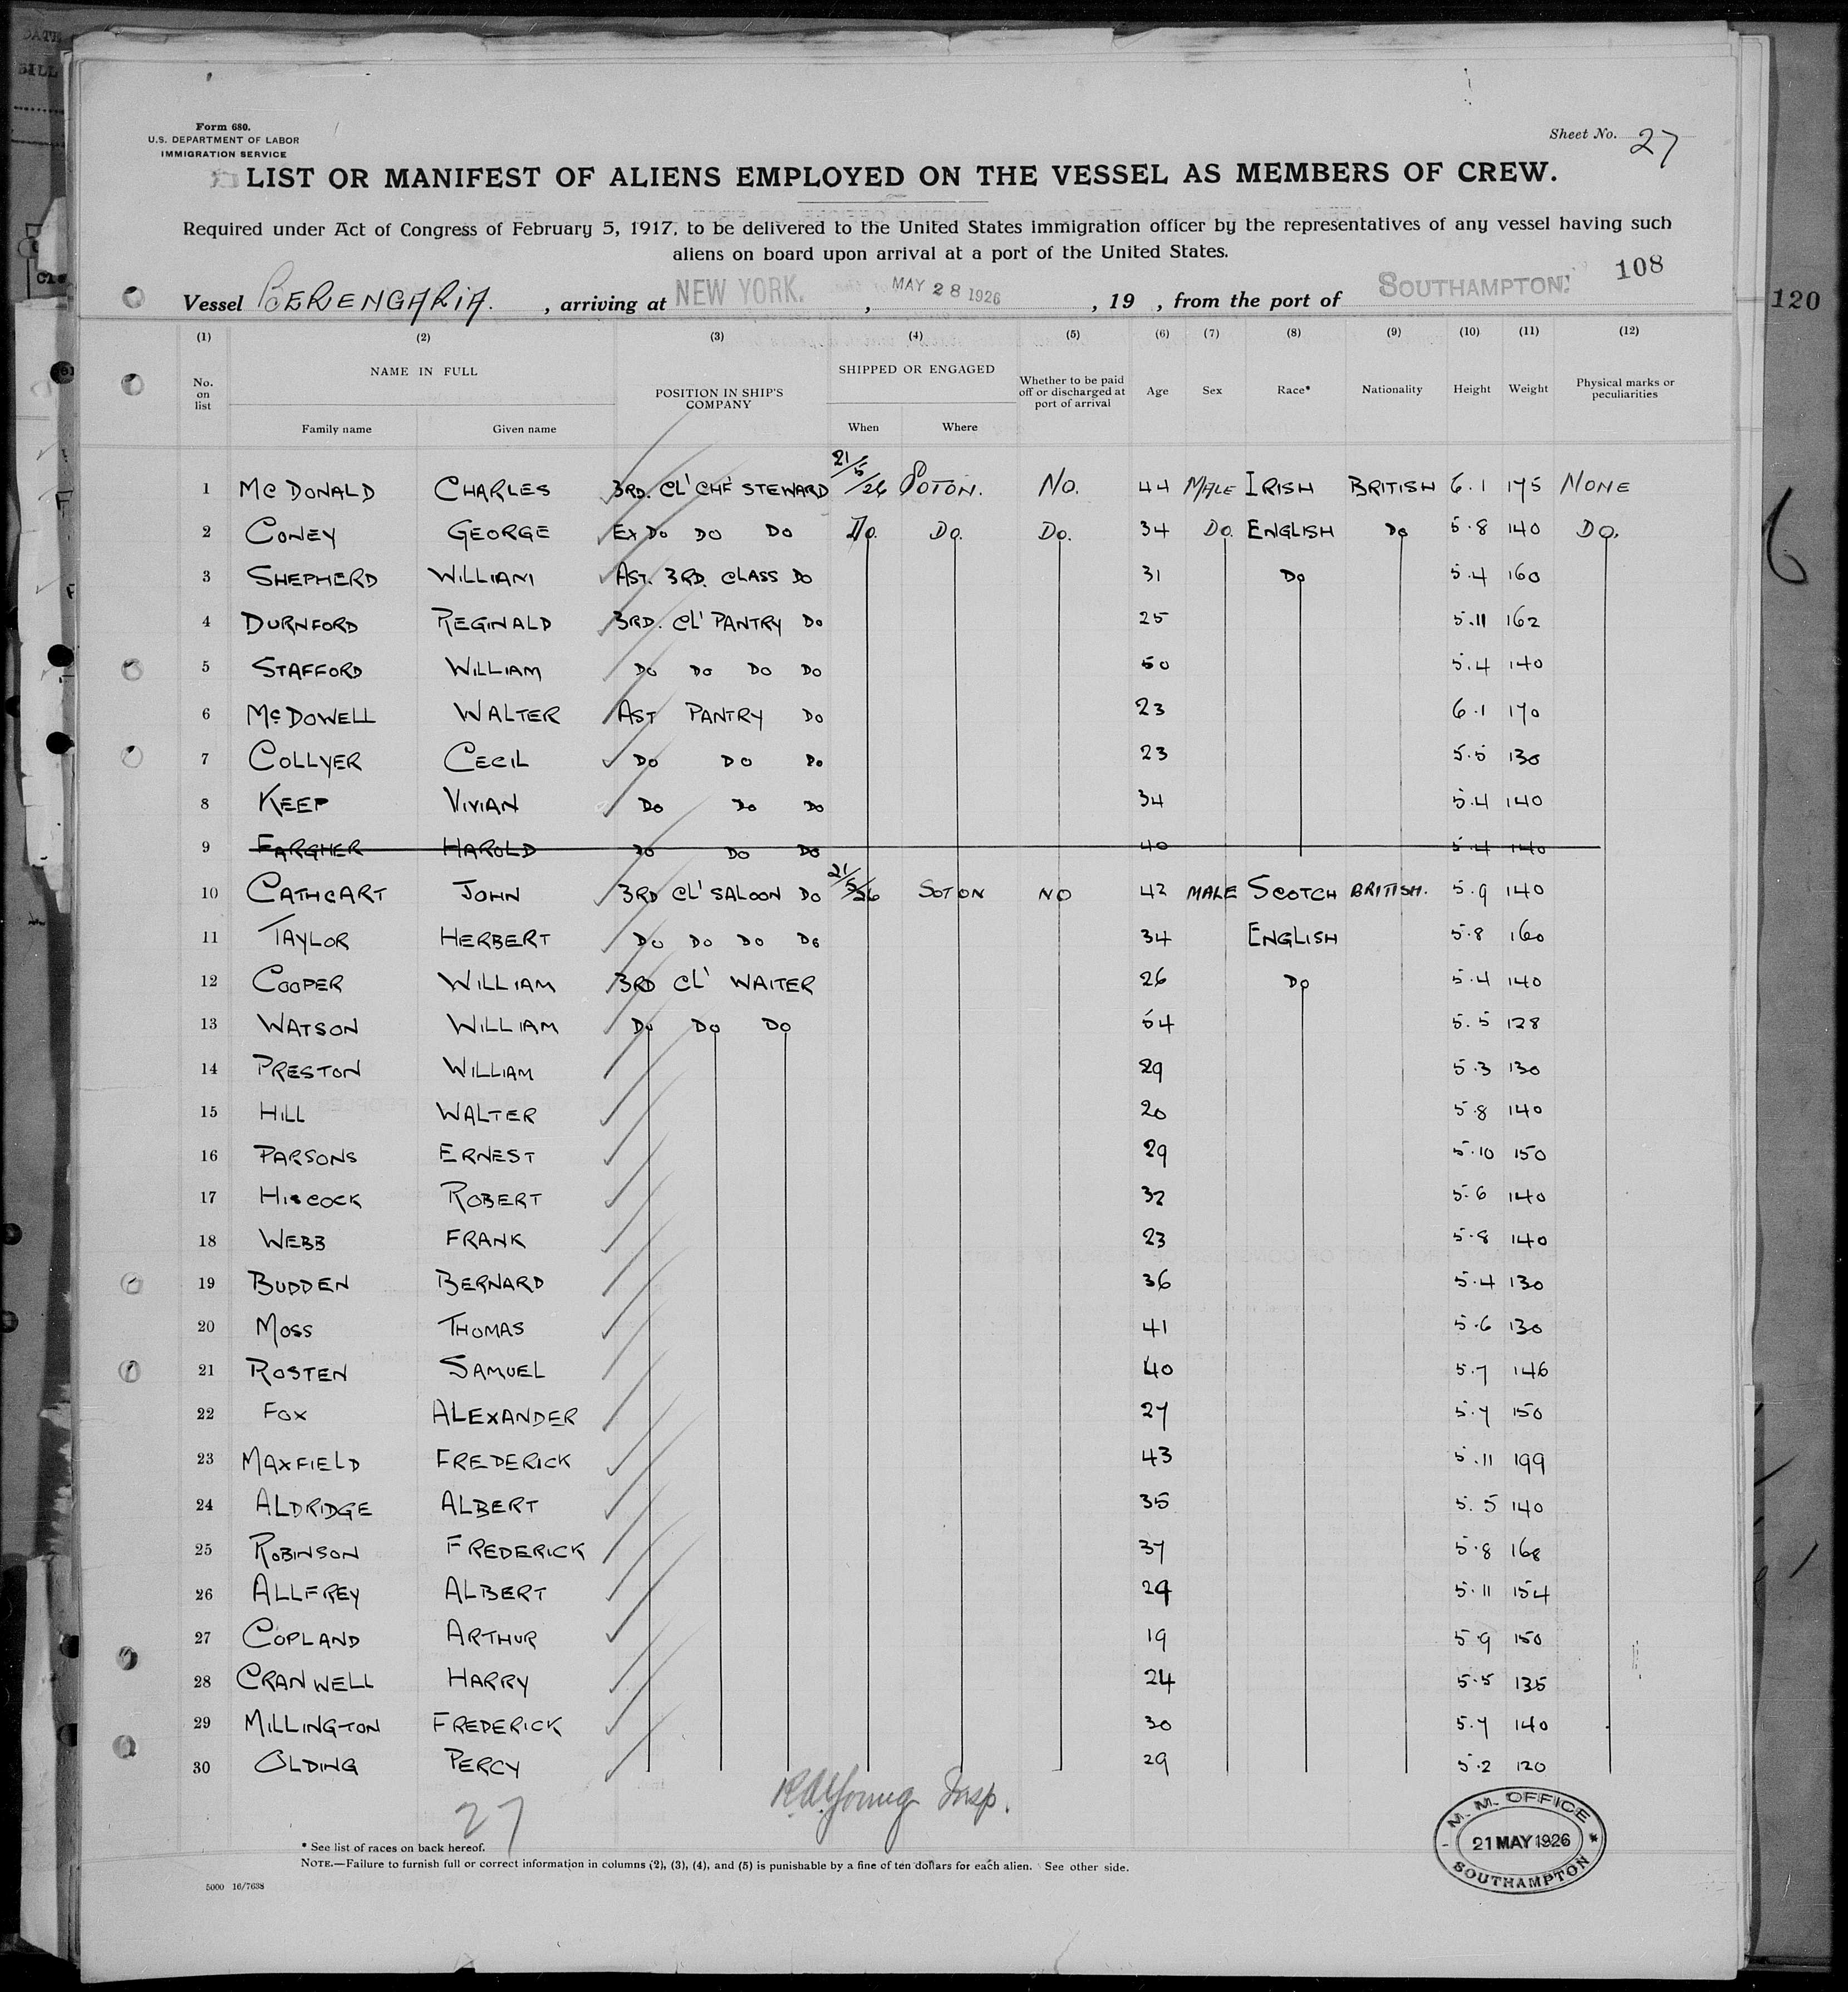 DATE
BILL
Form 680.
U.S. DEPARTMENT OF LABOR
IMMIGRATION SERVICE
Sheet No. 27
LIST OR MANIFEST OF ALIENS EMPLOYED ON THE VESSEL AS MEMBERS OF CREW.
Required under Act of Congress of February 5, 1917, to be delivered to the United States immigration officer by the representatives of any vessel having such
aliens on board upon arrival at a port of the United States.
108
120
Vessel BERENGARIA. , arriving at NEW YORK. , MAY 28 1926 , 19 , from the port of SOUTHAMPTON
(1) (2) (3) (4) (5) (6) (7) (8) (9) (10) (11) (12)
No. on list NAME IN FULL Family name Given name POSITION IN SHIP'S COMPANY SHIPPED OR ENGAGED When Where Whether to be paid off or discharged at port of arrival Age Sex Race* Nationality Height Weight Physical marks or peculiarities
1 McDONALD CHARLES 3RD. CL' CHF STEWARD 21/5/26 SOTON. No. 44 MALE IRISH BRITISH 6.1 175 NONE
2 CONEY GEORGE Ex Do Do Do Do. Do. Do. 34 Do. ENGLISH Do 5.8 140 Do.
3 SHEPHERD WILLIAM AST. 3RD. CLASS Do 31 Do 5.4 160
4 DURNFORD REGINALD 3RD. CL' PANTRY Do 25 5.11 162
5 STAFFORD WILLIAM Do Do Do Do 50 5.4 140
6 McDOWELL WALTER AST PANTRY Do 23 6.1 170
7 COLLYER CECIL Do Do Do 23 5.5 130
8 KEEP VIVIAN Do Do Do 34 5.4 140
9 FARGHER HAROLD Do Do Do 40 5.4 140
10 CATHCART JOHN 3RD CL' SALOON Do 21/5/26 SOTON NO 42 MALE SCOTCH BRITISH. 5.9 140
11 TAYLOR HERBERT Do Do Do Do 34 ENGLISH 5.8 160
12 COOPER WILLIAM 3RD CL' WAITER 26 Do 5.4 140
13 WATSON WILLIAM Do Do Do 54 5.5 128
14 PRESTON WILLIAM 29 5.3 130
15 HILL WALTER 20 5.8 140
16 PARSONS ERNEST 29 5.10 150
17 HISCOCK ROBERT 32 5.6 140
18 WEBB FRANK 23 5.8 140
19 BUDDEN BERNARD 36 5.4 130
20 MOSS THOMAS 41 5.6 130
21 ROSTEN SAMUEL 40 5.7 146
22 FOX ALEXANDER 27 5.7 150
23 MAXFIELD FREDERICK 43 5.11 199
24 ALDRIDGE ALBERT 35 5.5 140
25 ROBINSON FREDERICK 37 5.8 168
26 ALLFREY ALBERT 29 5.11 154
27 COPLAND ARTHUR 19 5.9 150
28 CRANWELL HARRY 24 5.5 135
29 MILLINGTON FREDERICK 30 5.7 140
30 OLDING PERCY 29 5.2 120
27
Young Insp.
* See list of races on back hereof.
NOTE.—Failure to furnish full or correct information in columns (2), (3), (4), and (5) is punishable by a fine of ten dollars for each alien. See other side.
5000 16/7638
M. M. OFFICE
21 MAY 1926
SOUTHAMPTON